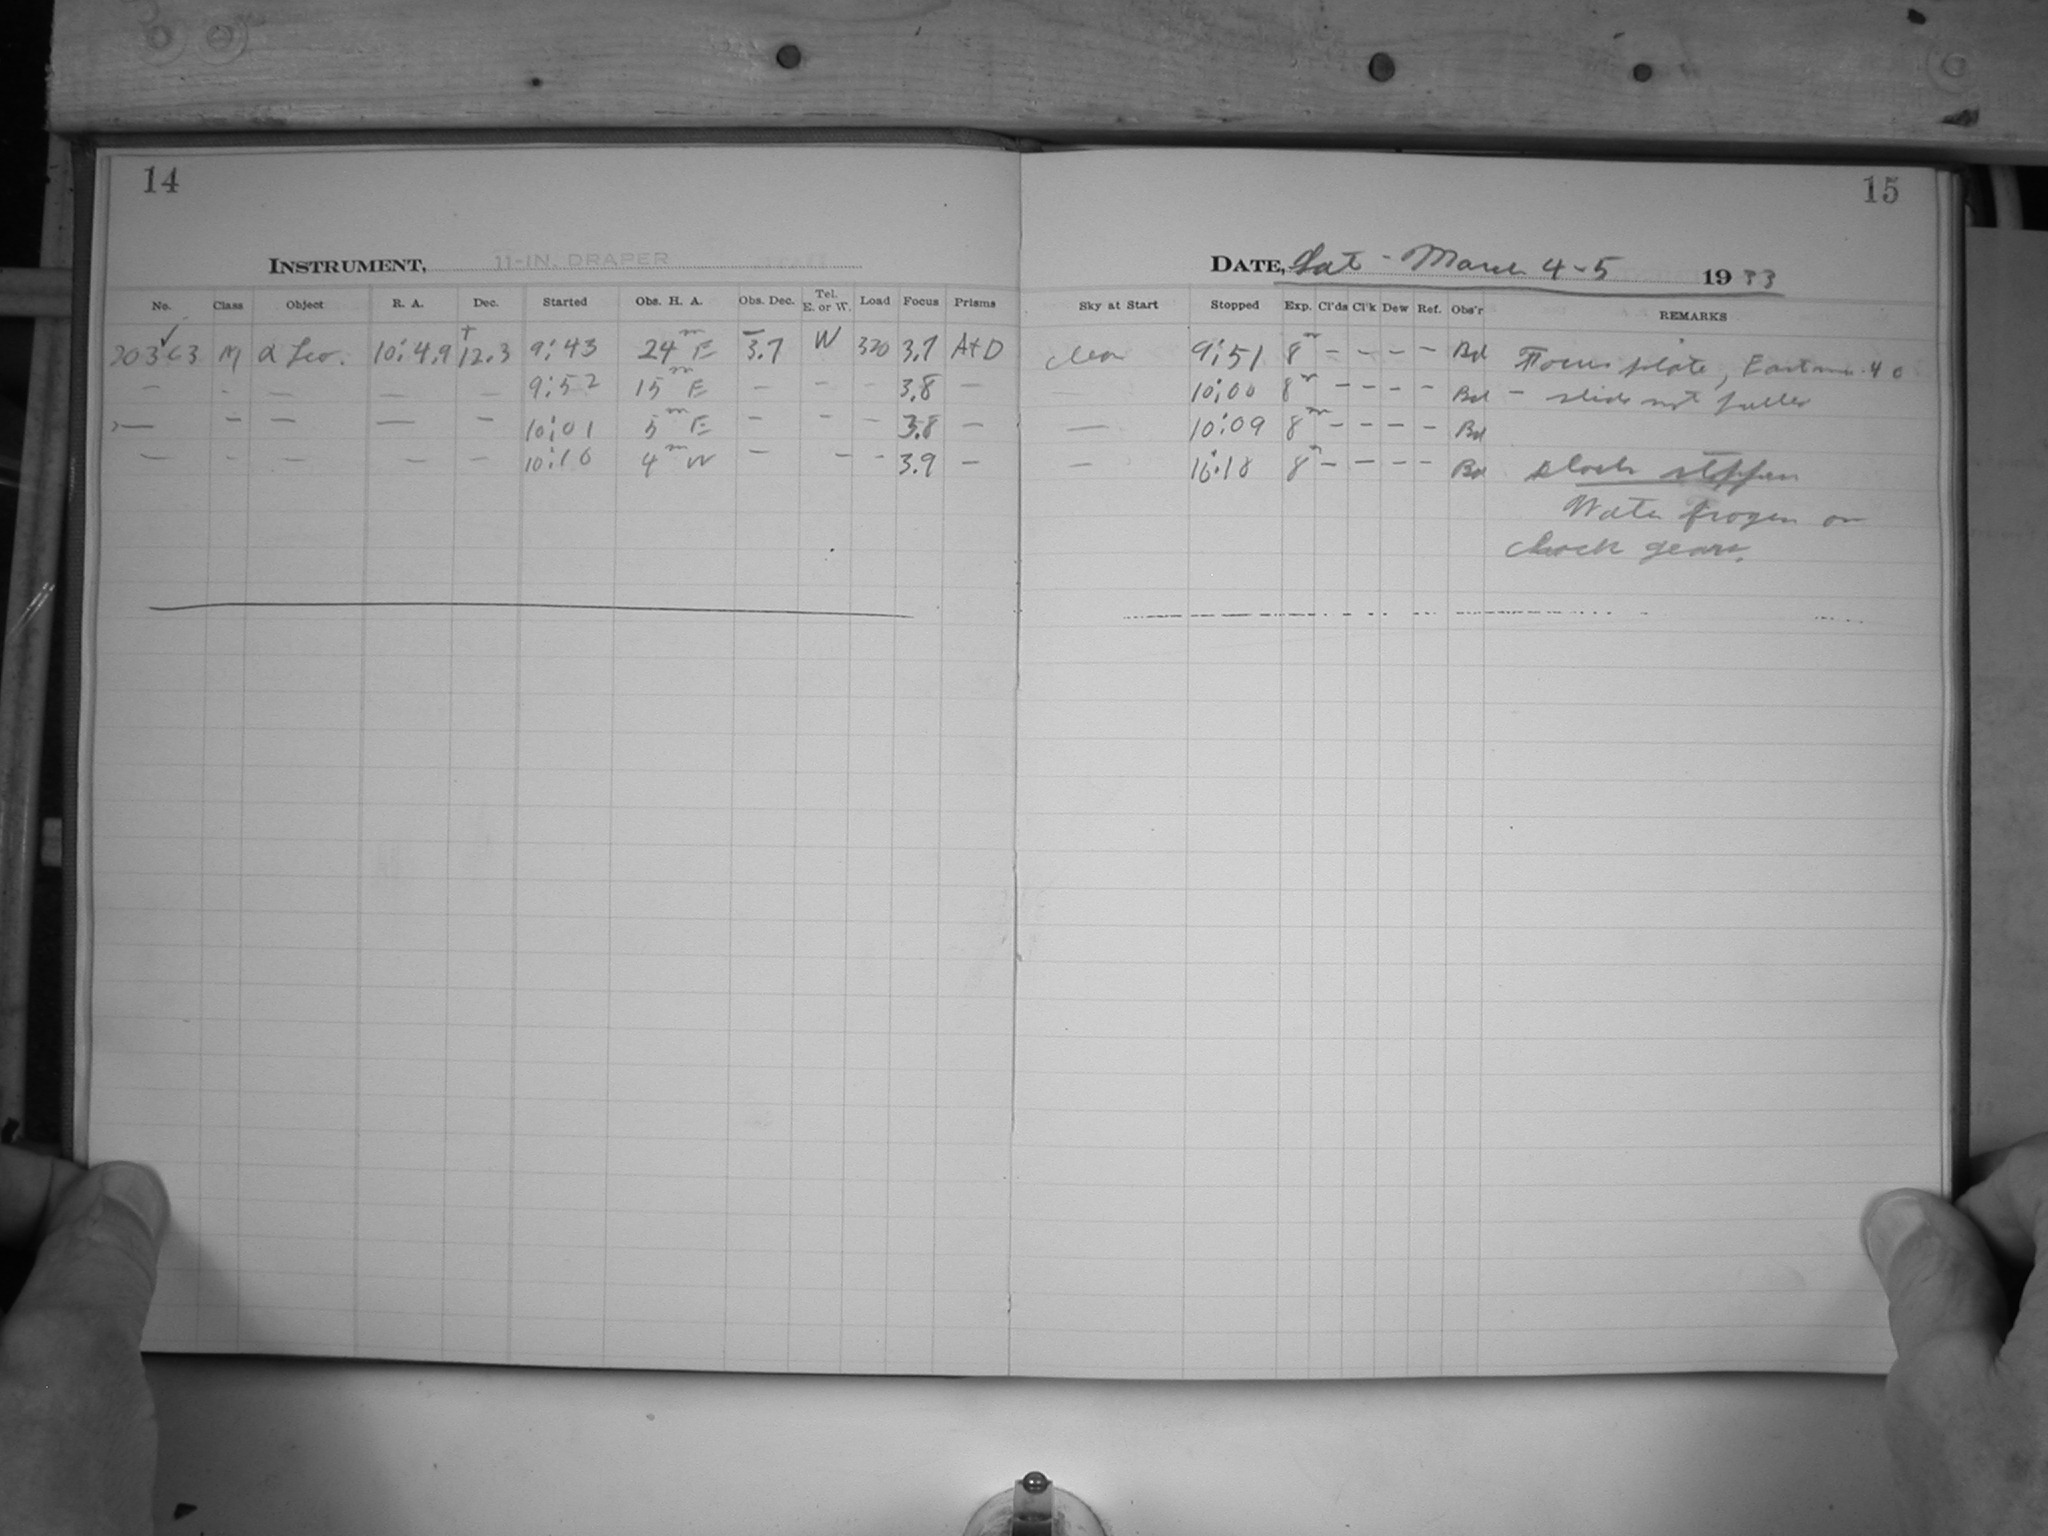 14
INSTRUMENT, 11-IN. DRAPER
No. Class Object R. A. Dec. Started Obs. H. A. Obs. Dec. Tel. E. or W. Load Focus Prisms
M α Leo. 10:4.9 +12.3 9:43 24m E 3.7 W 320 3.7 A+D
— - — — — 9:52 15m E — - - 3.8 —
— — — — — 10:01 5m E — - - 3.8 —
— - - — — 10:10 4m W — - - 3.9 —
15
DATE, Sat - March 4-5 1933
Sky at Start Stopped Exp. Cl'ds Cl'k Dew Ref. Obs'r REMARKS
clear 9:51 8m — — — — Bd Focus plate, Eastman 40
10:00 8m — — — — Bd — slide not pulled
— 10:09 8m — — — — Bd
— 10:18 8m — — — — Bd clock stopped
Water frozen on
clock gears.